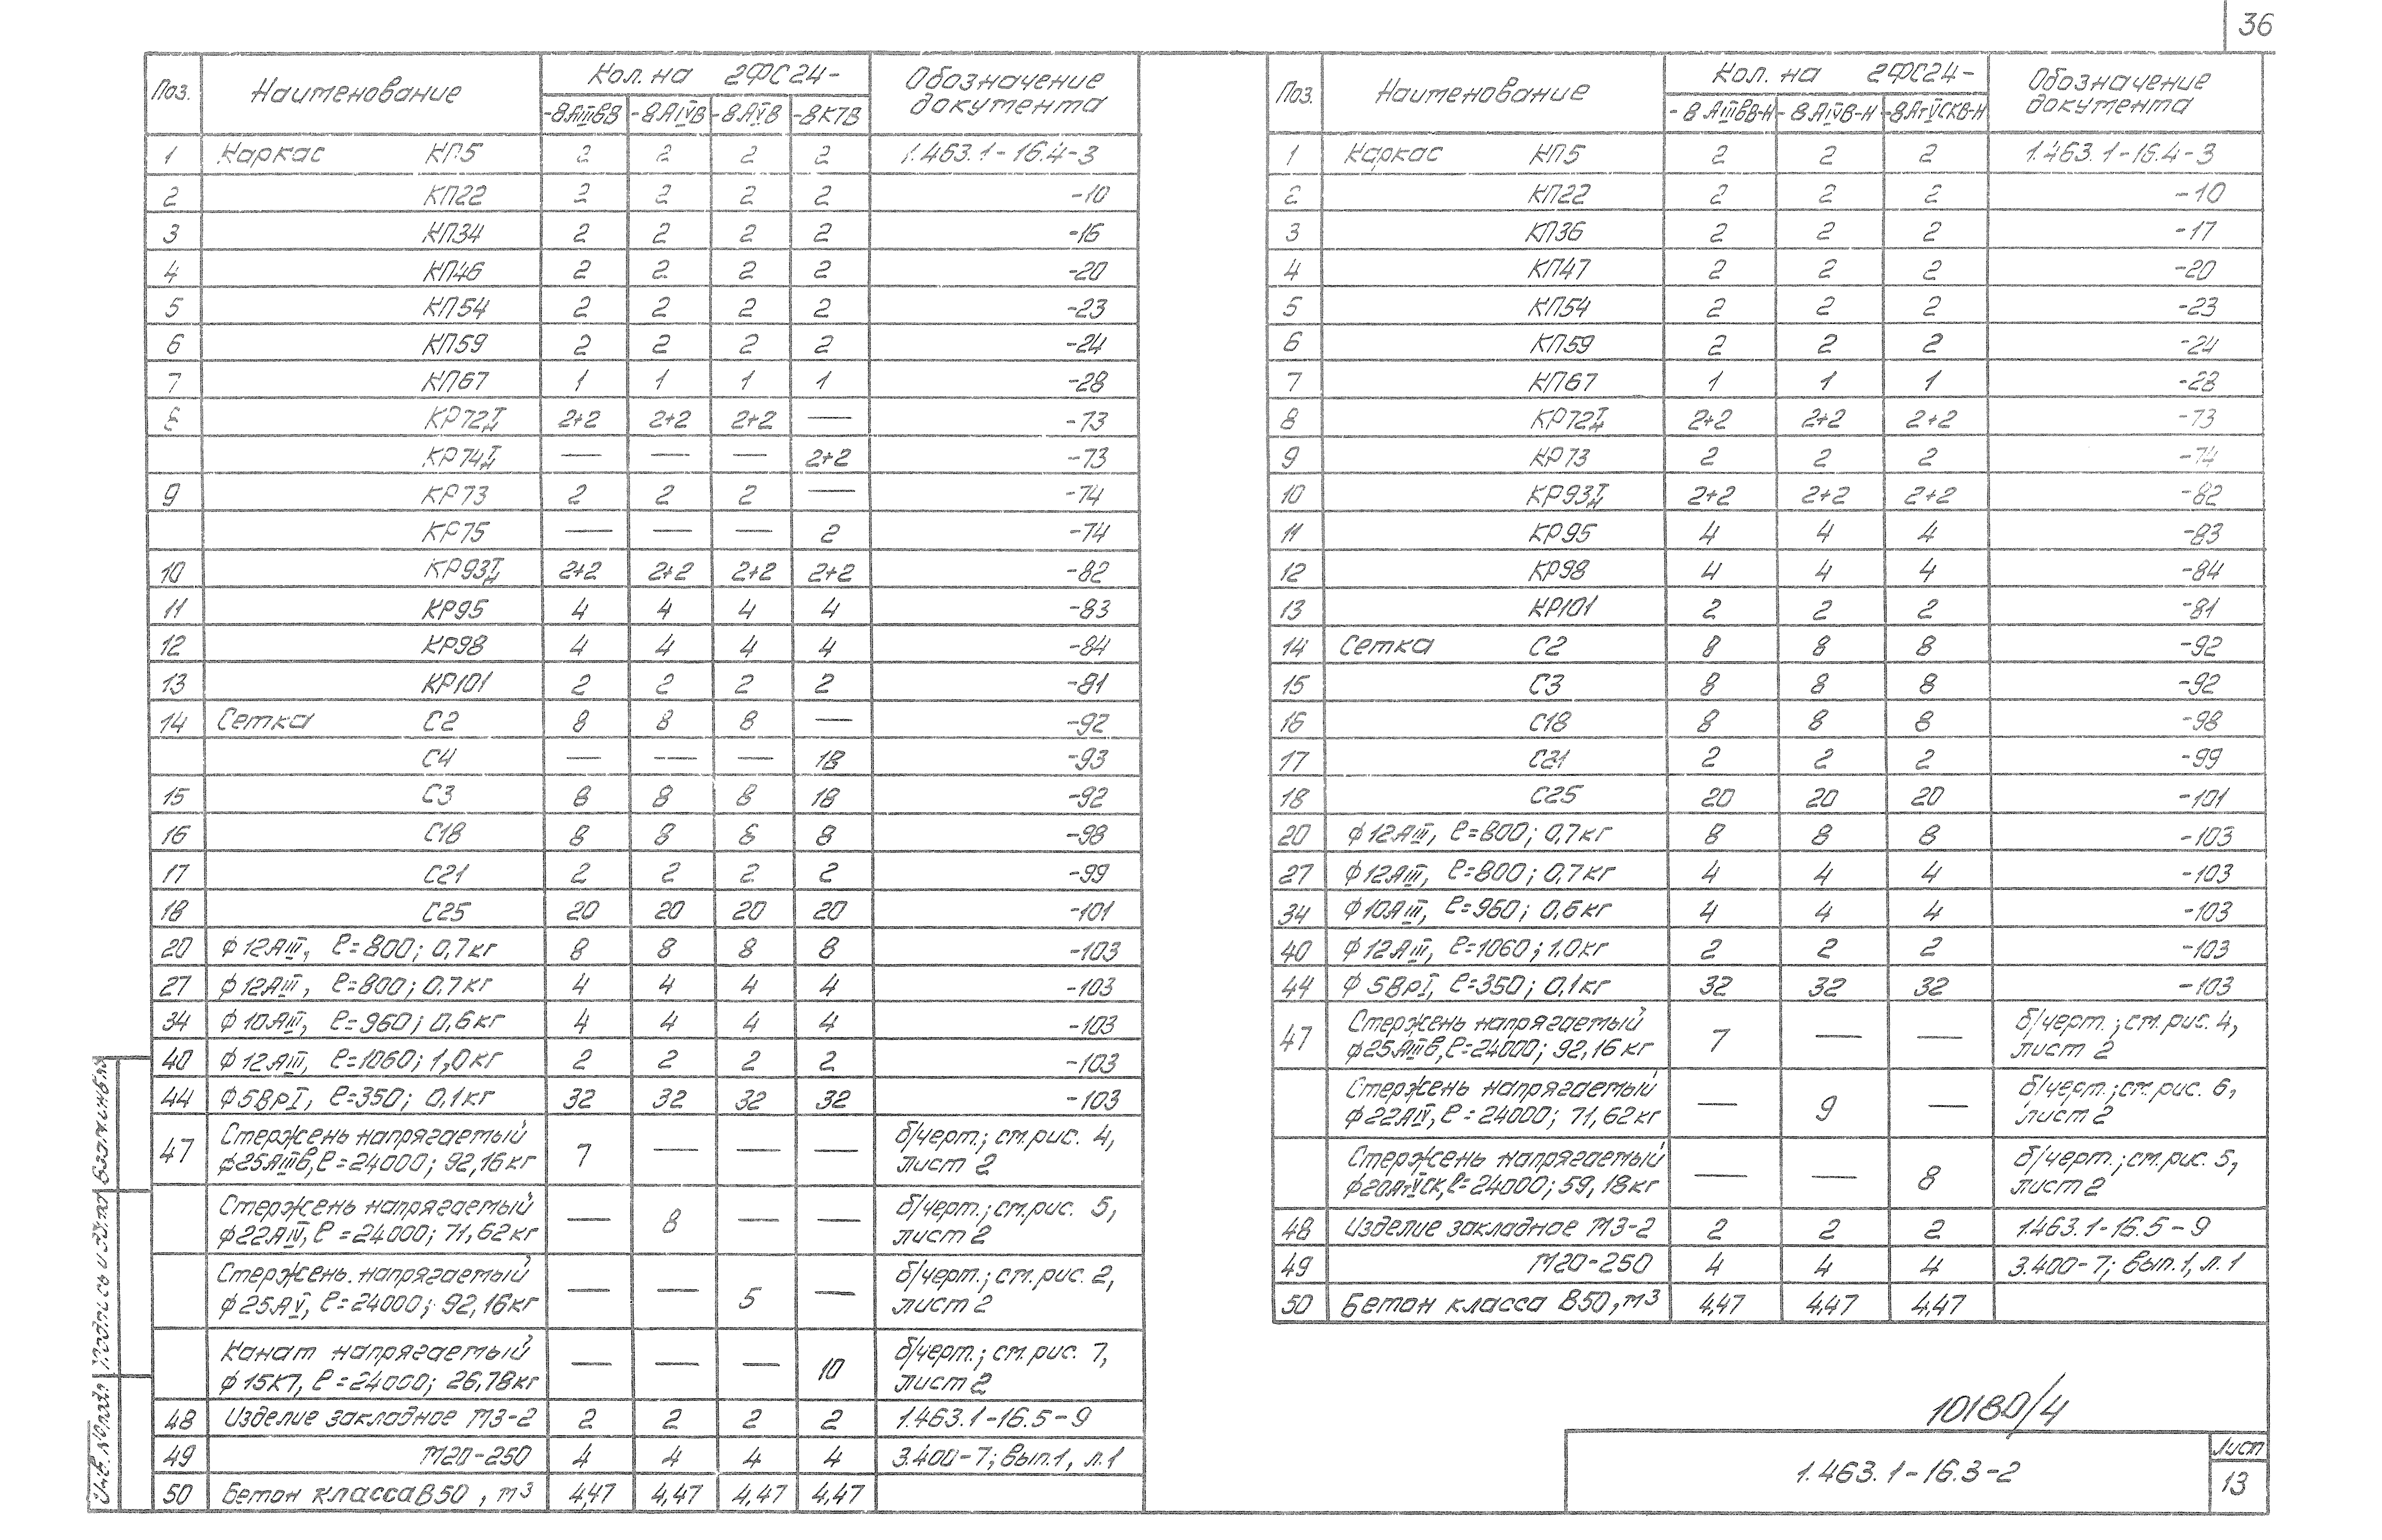 36
Поз. Наименование Кол. на 2ФС24- Обозначение документа
-8АIIIвВ -8АIVВ -8АVВ -8К7В
1 Каркас КП5 2 2 2 2 1.463.1-16.4-3
2 КП22 2 2 2 2 -10
3 КП34 2 2 2 2 -16
4 КП46 2 2 2 2 -20
5 КП54 2 2 2 2 -23
6 КП59 2 2 2 2 -24
7 КП67 1 1 1 1 -28
8 КР72Т,Н 2+2 2+2 2+2 — -73
КР74Т,Н — — — 2+2 -73
9 КР73 2 2 2 — -74
КР75 — — — 2 -74
10 КР93Т,Н 2+2 2+2 2+2 2+2 -82
11 КР95 4 4 4 4 -83
12 КР98 4 4 4 4 -84
13 КР101 2 2 2 2 -81
14 Сетка С2 8 8 8 — -92
С4 — — — 18 -93
15 С3 8 8 8 18 -92
16 С18 8 8 8 8 -98
17 С21 2 2 2 2 -99
18 С25 20 20 20 20 -101
20 ф12АIII, ℓ=800; 0,7кг 8 8 8 8 -103
27 ф12АIII, ℓ=800; 0,7кг 4 4 4 4 -103
34 ф10АIII, ℓ=960; 0,6кг 4 4 4 4 -103
40 ф12АIII, ℓ=1060; 1,0кг 2 2 2 2 -103
44 ф5ВрI, ℓ=350; 0,1кг 32 32 32 32 -103
47 Стержень напрягаемый
ф25АIIIв, ℓ=24000; 92,16кг 7 — — — б/черт.; см. рис. 4, лист 2
Стержень напрягаемый
ф22АIV, ℓ=24000; 71,62кг — 8 — — б/черт.; см. рис. 5, лист 2
Стержень напрягаемый
ф25АV, ℓ=24000; 92,16кг — — 5 — б/черт.; см. рис. 2, лист 2
Канат напрягаемый
ф15К7, ℓ=24000; 26,78кг — — — 10 б/черт.; см. рис. 7, лист 2
48 Изделие закладное М3-2 2 2 2 2 1.463.1-16.5-9
49 М20-250 4 4 4 4 3.400-7; вып.1, л.1
50 Бетон класса В50, м3 4,47 4,47 4,47 4,47
Поз. Наименование Кол. на 2ФС24- Обозначение документа
-8АIIIвВ-Н -8АIVВ-Н -8АтVСКВ-Н
1 Каркас КП5 2 2 2 1.463.1-16.4-3
2 КП22 2 2 2 -10
3 КП36 2 2 2 -17
4 КП47 2 2 2 -20
5 КП54 2 2 2 -23
6 КП59 2 2 2 -24
7 КП67 1 1 1 -28
8 КР72Т,Н 2+2 2+2 2+2 -73
9 КР73 2 2 2 -74
10 КР93Т,Н 2+2 2+2 2+2 -82
11 КР95 4 4 4 -83
12 КР98 4 4 4 -84
13 КР101 2 2 2 -81
14 Сетка С2 8 8 8 -92
15 С3 8 8 8 -92
16 С18 8 8 8 -98
17 С21 2 2 2 -99
18 С25 20 20 20 -101
20 ф12АIII, ℓ=800; 0,7кг 8 8 8 -103
27 ф12АIII, ℓ=800; 0,7кг 4 4 4 -103
34 ф10АIII, ℓ=960; 0,6кг 4 4 4 -103
40 ф12АIII, ℓ=1060; 1,0кг 2 2 2 -103
44 ф5ВрI, ℓ=350; 0,1кг 32 32 32 -103
47 Стержень напрягаемый
ф25АIIIв, ℓ=24000; 92,16кг 7 — — б/черт.; см. рис. 4, лист 2
Стержень напрягаемый
ф22АIV, ℓ=24000; 71,62кг — 9 — б/черт.; см. рис. 6, лист 2
Стержень напрягаемый
ф20АтVСК, ℓ=24000; 59,18кг — — 8 б/черт.; см. рис. 5, лист 2
48 Изделие закладное М3-2 2 2 2 1.463.1-16.5-9
49 М20-250 4 4 4 3.400-7; вып.1, л.1
50 Бетон класса В50, м3 4,47 4,47 4,47
10180/4
1.463.1-16.3-2
Лист
13
Инв. № подл. Подпись и дата Взам.инв.№